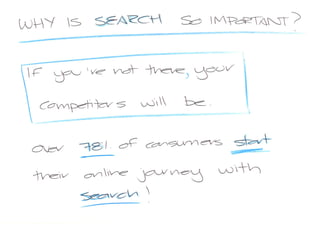 WHY IS SEARCH SO IMPORTANT?
If you're not there, your
competitors will be.
over 78% of consumers start
their online journey with
search!